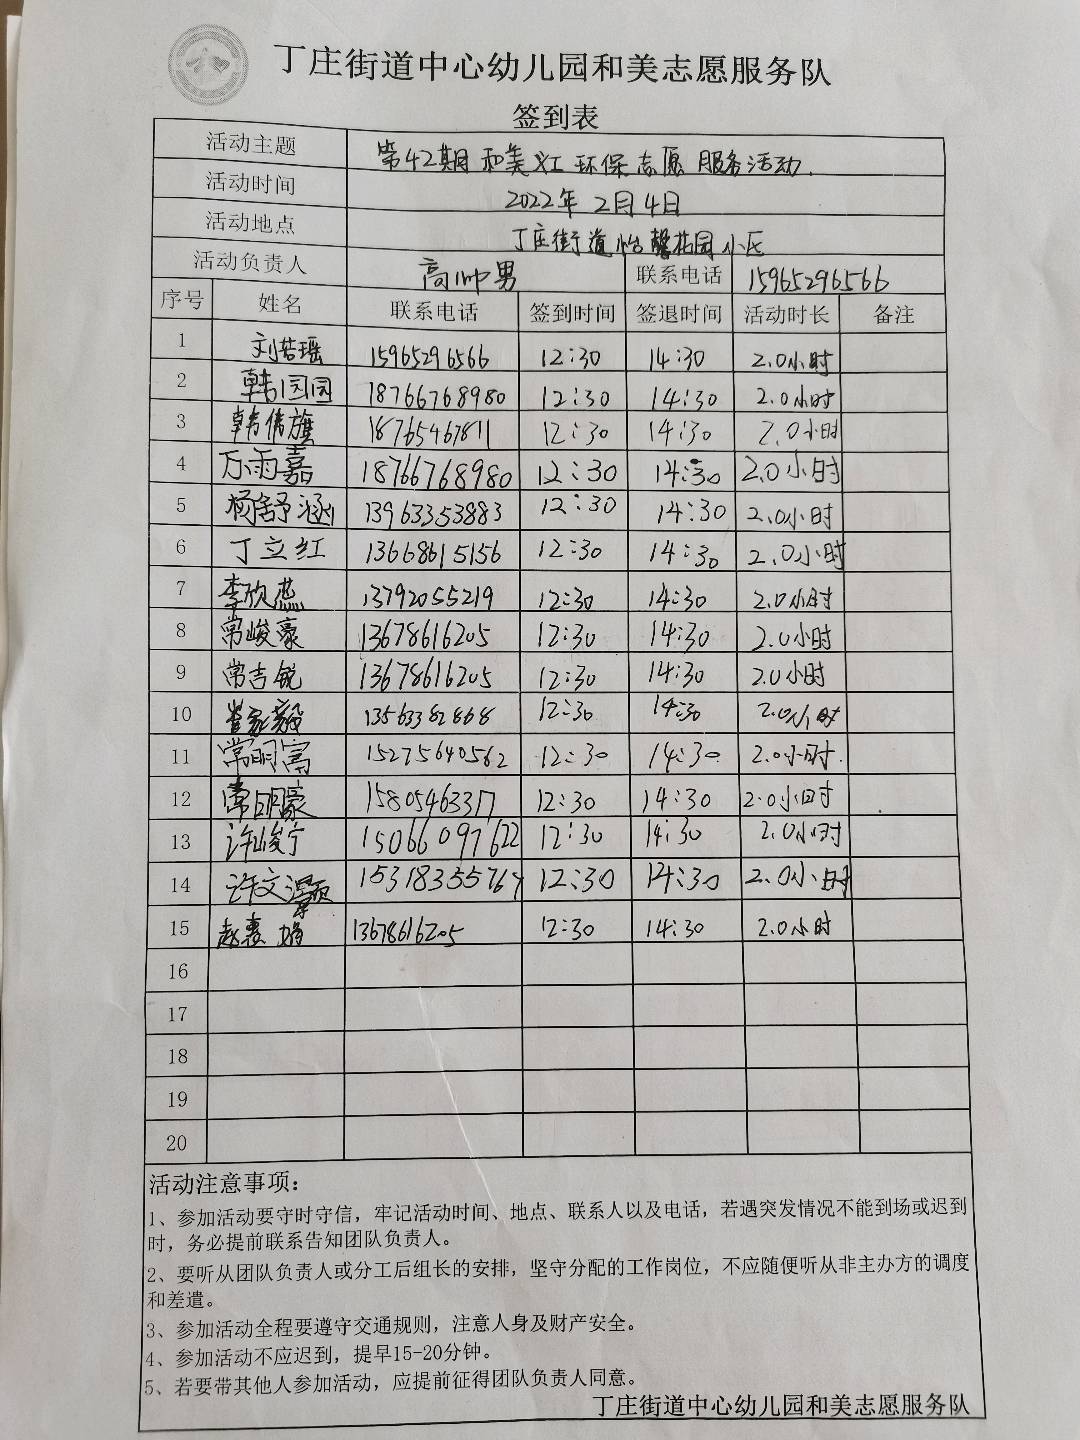 丁庄街道中心幼儿园和美志愿服务队
签到表
活动主题 第42期和美义工环保志愿服务活动.
活动时间 2022年2月4日
活动地点 丁庄街道怡馨花园小区
活动负责人 高帅男 联系电话 15965296566
序号 姓名 联系电话 签到时间 签退时间 活动时长 备注
1 刘若瑶 15965296566 12:30 14:30 2.0小时
2 韩园园 18766768980 12:30 14:30 2.0小时
3 韩倩旗 18765467811 12:30 14:30 2.0小时
4 万雨嘉 18766768980 12:30 14:30 2.0小时
5 杨舒涵 13963353883 12:30 14:30 2.0小时
6 丁立红 13668615156 12:30 14:30 2.0小时
7 李欣燕 13792055219 12:30 14:30 2.0小时
8 常峻豪 13678616205 12:30 14:30 2.0小时
9 常吉锐 13678616205 12:30 14:30 2.0小时
10 13563382868 12:30 14:30 2.0小时
11 常明富 15275640562 12:30 14:30 2.0小时.
12 常明豪 15805463317 12:30 14:30 2.0小时
13 许峻宁 15066097622 12:30 14:30 2.0小时
14 许文灏 15318355767 12:30 14:30 2.0小时
15 赵 娟 13678616205 12:30 14:30 2.0小时
16
17
18
19
20
活动注意事项：
1、参加活动要守时守信，牢记活动时间、地点、联系人以及电话，若遇突发情况不能到场或迟到
时，务必提前联系告知团队负责人。
2、要听从团队负责人或分工后组长的安排，坚守分配的工作岗位，不应随便听从非主办方的调度
和差遣。
3、参加活动全程要遵守交通规则，注意人身及财产安全。
4、参加活动不应迟到，提早15-20分钟。
5、若要带其他人参加活动，应提前征得团队负责人同意。
丁庄街道中心幼儿园和美志愿服务队